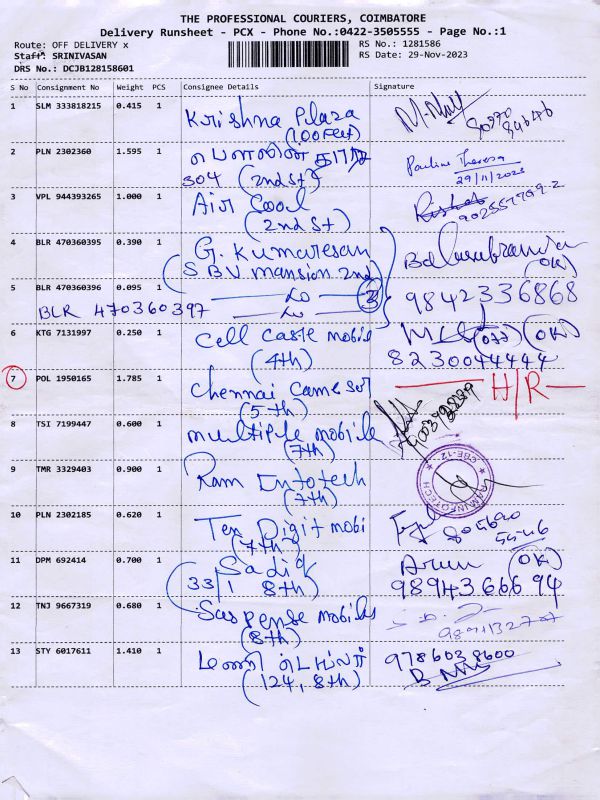 THE PROFESSIONAL COURIERS, COIMBATORE
Delivery Runsheet - PCX - Phone No.:0422-3505555 - Page No.:1
Route: OFF DELIVERY x
RS No.: 1281586
Staff: SRINIVASAN
RS Date: 29-Nov-2023
DRS No.: DCJB128158601
S No Consignment No Weight PCS Consignee Details Signature
1 SLM 333818215 0.415 1 Krishna Plaza
(100 Feet)
2 PLN 2302360 1.595 1
304 (2nd St) Pauline Theresa
29/11/2023
3 VPL 944393265 1.000 1 Air Cool
(2nd St)
4 BLR 470360395 0.390 1 G. Kumaresan
(SBV mansion 2nd) (OK)
5 BLR 470360396 0.095 1 3 9842336868
BLR 470360397
6 KTG 7131997 0.250 1 Cell Castle mobile (OK)
(4th) 8230044444
7 POL 1950165 1.785 1 Chennai Camesor H/R
(5th)
8 TSI 7199447 0.600 1 multiple mobile
(7th)
9 TMR 3329403 0.900 1 Ram Infotech
(7th) RAM INFOTECH CBE-12
10 PLN 2302185 0.620 1 Ten Digit mobi
(7th)
11 DPM 692414 0.700 1 Sadiq Arun (OK)
33/1 8th) 9894366694
12 TNJ 9667319 0.680 1 Suspense mobiles
(8th)
13 STY 6017611 1.410 1 மணி டையலர் 9786038600
(124, 8th)